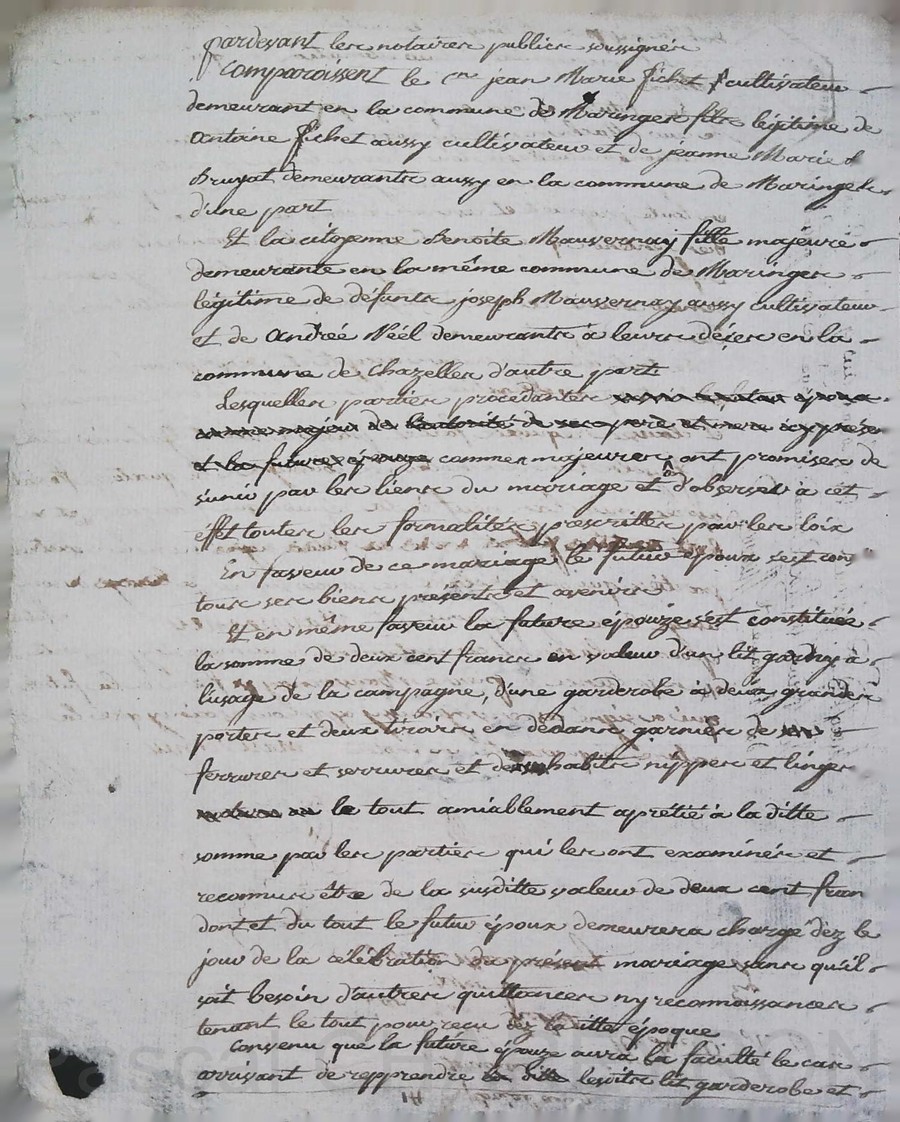 pardevant les notaires publics soussignés
Comparoissent le c^en jean Marie fichet cultivateur
demeurant en la commune de Maringes fils légitime de
antoine fichet aussy cultivateur et de jeanne Marie
Bruyat demeurants aussy en la commune de Maringes
d'une part
Et la citoyenne Benoite Mauvernay fille majeure
demeurante en la même commune de Maringes
légitime de défunts joseph Mauvernay aussy cultivateur
et de andrée Néél demeurants à leurs décès en la
commune de chazelles d'autre part
Lesquelles parties procédantes
et la future épouze comme majeures ont promis de
s'unir par les liens du mariage et d'observer à cet
éffet toutes les formalités prescrittes par les loix
En faveur de ce mariage le futur époux s'est con
tous ses biens présents et avenirs
Et en même faveur la future épouze s'est constituée
la somme de deux cent francs en valeur d'un lit garny à
l'usage de la campagne, d'une garderobe à deux grandes
portes et deux tiroirs en dedans garnies de
ferrures et serrures et de habits nippes et linges
le tout amiablement aprétié à la ditte
somme par les parties qui les ont examinés et
reconnus être de la susditte valeur de deux cent fran
dont et du tout le futur époux demeurera chargé dèz le
jour de la célébration du présent mariage sans qu'il
soit besoin d'autres quittances ny reconnoissances
tenant le tout pour reçu dèz la ditte époque
convenu que la future épouze aura la faculté le cas
arrivant de repprendre lesdits lit garderobe et